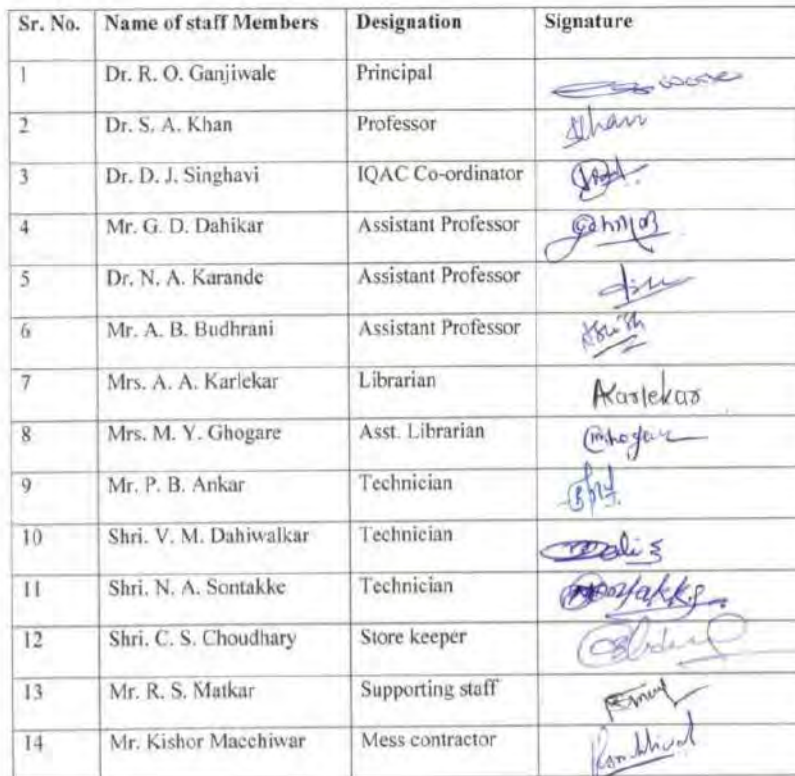 Sr. No. Name of staff Members Designation Signature
1 Dr. R. O. Ganjiwale Principal
2 Dr. S. A. Khan Professor Khan
3 Dr. D. J. Singhavi IQAC Co-ordinator
4 Mr. G. D. Dahikar Assistant Professor
5 Dr. N. A. Karande Assistant Professor
6 Mr. A. B. Budhrani Assistant Professor
7 Mrs. A. A. Karlekar Librarian AKarlekar
8 Mrs. M. Y. Ghogare Asst. Librarian
9 Mr. P. B. Ankar Technician
10 Shri. V. M. Dahiwalkar Technician
11 Shri. N. A. Sontakke Technician
12 Shri. C. S. Choudhary Store keeper
13 Mr. R. S. Matkar Supporting staff
14 Mr. Kishor Macchiwar Mess contractor